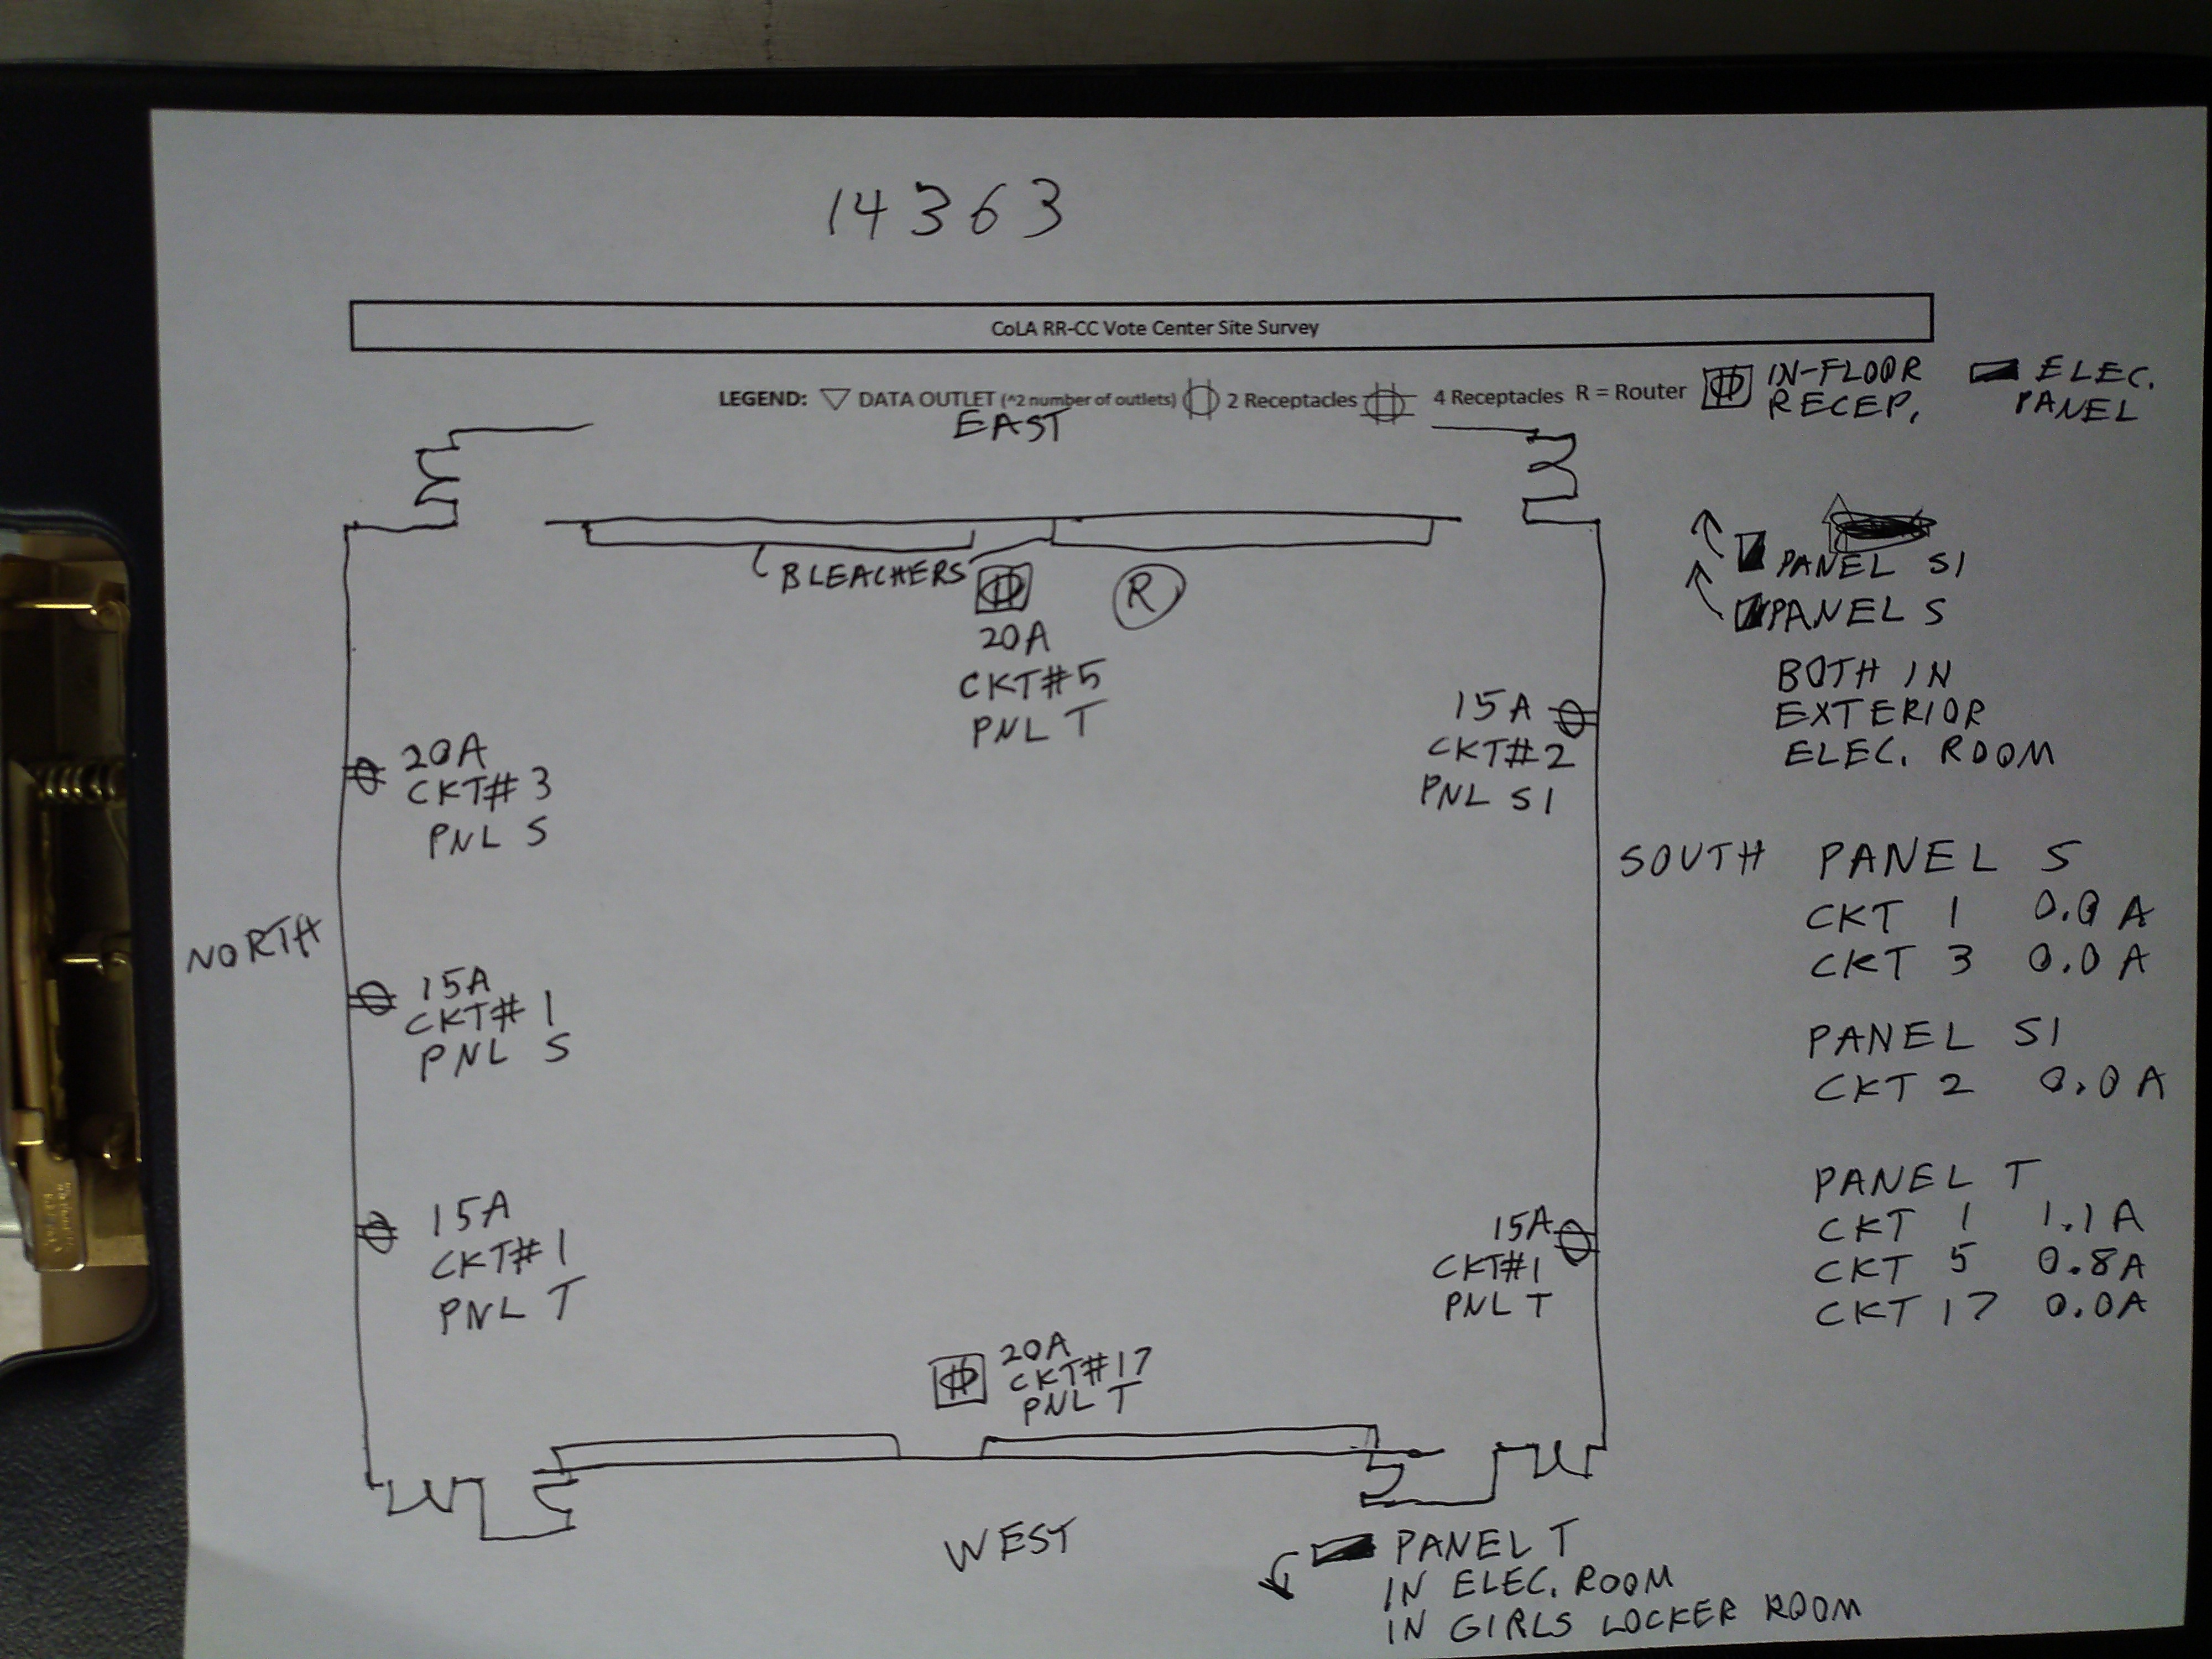 14363
CoLA RR-CC Vote Center Site Survey
LEGEND: DATA OUTLET (^2 number of outlets) 2 Receptacles 4 Receptacles R = Router IN-FLOOR RECEP. ELEC. PANEL
EAST
BLEACHERS
R
20A
CKT#5
PNL T
20A
CKT#3
PNL S
15A
CKT#2
PNL S1
PANEL S1
PANEL S
BOTH IN
EXTERIOR
ELEC. ROOM
NORTH
15A
CKT#1
PNL S
SOUTH
PANEL S
CKT 1 0.0 A
CKT 3 0.0 A
PANEL S1
CKT 2 0.0 A
PANEL T
CKT 1 1.1 A
CKT 5 0.8A
CKT 17 0.0A
15A
CKT#1
PNL T
15A
CKT#1
PNL T
20A
CKT#17
PNL T
WEST
PANEL T
IN ELEC. ROOM
IN GIRLS LOCKER ROOM